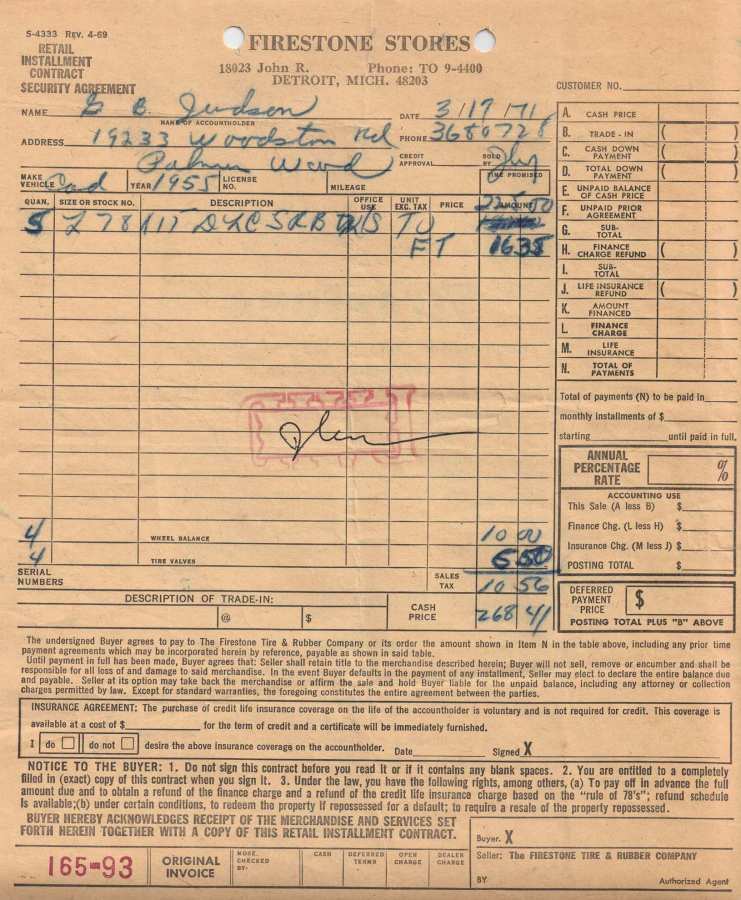 S-4333 REV. 4-69
RETAIL
INSTALLMENT
CONTRACT
SECURITY AGREEMENT
FIRESTONE STORES
18023 John R. Phone: TO 9-4400
DETROIT, MICH. 48203
CUSTOMER NO.
NAME G B. Judson
NAME OF ACCOUNTHOLDER
DATE 3/17/71
ADDRESS 19233 Woodston Rd
PHONE 3680728
Palmer Wood
CREDIT APPROVAL
SOLD BY
MAKE VEHICLE Cad YEAR 1955 LICENSE NO. MILEAGE TIME PROMISED
QUAN. SIZE OR STOCK NO. DESCRIPTION OFFICE USE UNIT EXC. TAX PRICE AMOUNT
5 L78 X15 DLC
FT 16 35
4 WHEEL BALANCE 10 00
4 TIRE VALVES
SERIAL NUMBERS
SALES TAX 10 56
DESCRIPTION OF TRADE-IN:
@ $
CASH PRICE 268 41
A. CASH PRICE
B. TRADE-IN ( )
C. CASH DOWN PAYMENT ( )
D. TOTAL DOWN PAYMENT ( )
E. UNPAID BALANCE OF CASH PRICE
F. UNPAID PRIOR AGREEMENT
G. SUB-TOTAL
H. FINANCE CHARGE REFUND ( )
I. SUB-TOTAL
J. LIFE INSURANCE REFUND ( )
K. AMOUNT FINANCED
L. FINANCE CHARGE
M. LIFE INSURANCE
N. TOTAL OF PAYMENTS
Total of payments (N) to be paid in
monthly installments of $
starting until paid in full.
ANNUAL PERCENTAGE RATE %
ACCOUNTING USE
This Sale (A less B) $
Finance Chg. (L less H) $
Insurance Chg. (M less J) $
POSTING TOTAL $
DEFERRED PAYMENT PRICE $
POSTING TOTAL PLUS "B" ABOVE
The undersigned Buyer agrees to pay to The Firestone Tire & Rubber Company or its order the amount shown in Item N in the table above, including any prior time
payment agreements which may be incorporated herein by reference, payable as shown in said table.
Until payment in full has been made, Buyer agrees that: Seller shall retain title to the merchandise described herein; Buyer will not sell, remove or encumber and shall be
responsible for all loss of and damage to said merchandise. In the event Buyer defaults in the payment of any installment, Seller may elect to declare the entire balance due
and payable. Seller at its option may take back the merchandise or affirm the sale and hold Buyer liable for the unpaid balance, including any attorney or collection
charges permitted by law. Except for standard warranties, the foregoing constitutes the entire agreement between the parties.
INSURANCE AGREEMENT: The purchase of credit life insurance coverage on the life of the accountholder is voluntary and is not required for credit. This coverage is
available at a cost of $ for the term of credit and a certificate will be immediately furnished.
I do do not desire the above insurance coverage on the accountholder. Date Signed X
NOTICE TO THE BUYER: 1. Do not sign this contract before you read it or if it contains any blank spaces. 2. You are entitled to a completely
filled in (exact) copy of this contract when you sign it. 3. Under the law, you have the following rights, among others, (a) To pay off in advance the full
amount due and to obtain a refund of the finance charge and a refund of the credit life insurance charge based on the "rule of 78's"; refund schedule
is available;(b) under certain conditions, to redeem the property if repossessed for a default; to require a resale of the property repossessed.
BUYER HEREBY ACKNOWLEDGES RECEIPT OF THE MERCHANDISE AND SERVICES SET
FORTH HEREIN TOGETHER WITH A COPY OF THIS RETAIL INSTALLMENT CONTRACT.
Buyer. X
Seller: The FIRESTONE TIRE & RUBBER COMPANY
BY Authorized Agent
165-93
ORIGINAL INVOICE
MDSE. CHECKED BY- CASH DEFERRED TERMS OPEN CHARGE DEALER CHARGE